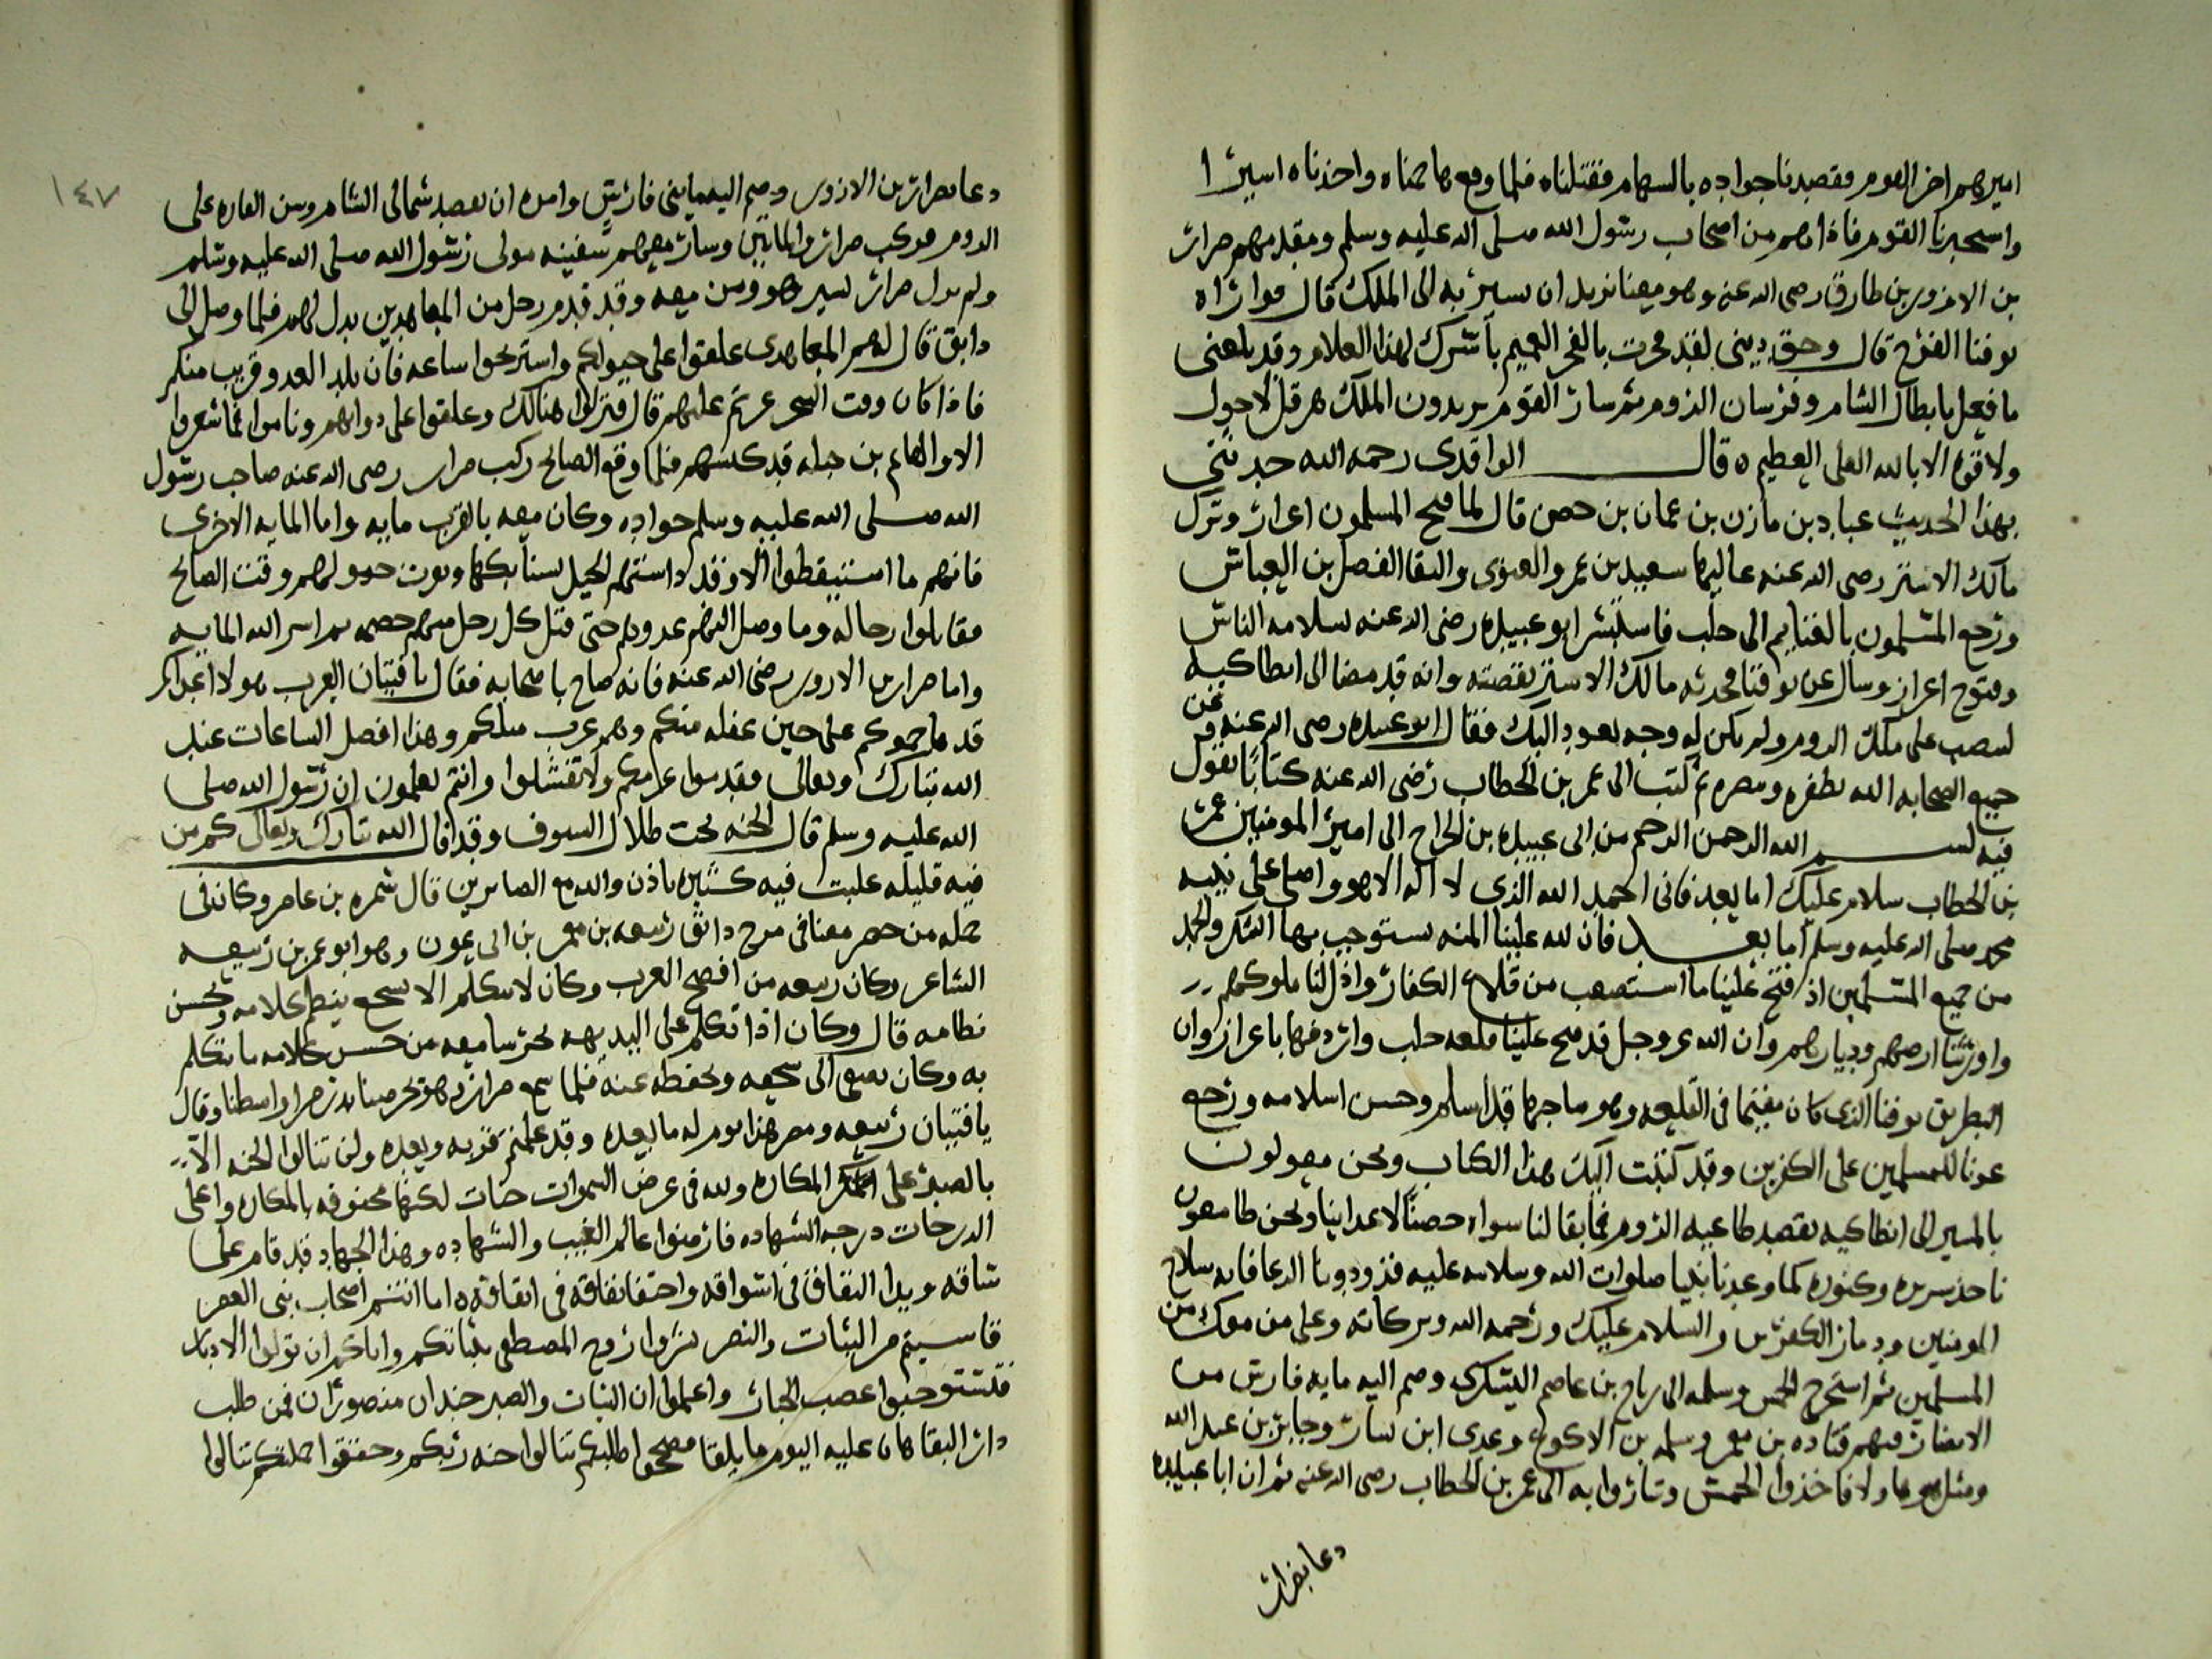 اميرهم اخر القوم فقصدنا جواده بالسهام فقتلناه فلما وقع هاجمناه واخذناه اسيرا
واستخبرنا القوم فاذا هم من اصحاب رسول الله صلى الله عليه وسلم ومقدمهم ضرار
بن الازور بن طارق رضى الله عنه وهو معنا نريد ان نسير به الى الملك قال فوازاه
يوقنا الفرح قال وحق دينى لقد فخرت بالفخر العميم باسرك لهذا الغلام وقد بلغنى
ما فعل بابطال الشام وفرسان الروم ثم سار القوم يريدون الملك هرقل لا حول
ولا قوة الا بالله العلى العظيم ٥ قال الواقدى رحمه الله حدثنى
بهذا الحديث عباد بن مازن بن عمان بن حصن قال لما فتح المسلمون اعزاز وترك
مالك الاشتر رضى الله عنه عاليها سعيد بن عمرو الغنوى والتقا الفضل بن العباس
ورجع المسلمون بالغنايم الى حلب فاستبشر ابو عبيده رضى الله عنه بسلامه الناس
وفتوح اعزاز وسال عن يوقنا فحدثه مالك الاشتر بقصته وانه قد مضا الى انطاكيه
لينصب على ملك الروم ولم يكن له وجه يعود اليك فقال ابو عبيده رضى الله عنه وعن
جميع الصحابه الله يظفره وينصره ثم كتب الى عمر بن الخطاب رضى الله عنه كتابا يقول
فيه بسم الله الرحمن الرحيم من ابى عبيده بن الجراح الى امير المومنين عمر
بن الخطاب سلام عليك اما بعد فانى احمد الله الذى لا اله الا هو واصلى على نبيه
محمد صلى الله عليه وسلم اما بعد فان لله علينا المنه يستوجب بها الشكر والحمد
من جميع المسلمين اذ فتح علينا ما استصعب من قلاع الكفار واذل لنا ملوكهم
واورثنا ارضهم وديارهم وان الله عز وجل قد فتح علينا قلعه حلب واردفها باعزاز وان
البطريق يوقنا الذى كان مقيما فى القلعه وهو صاحبها قد اسلم وحسن اسلامه ورجع
عونا للمسلمين على الكفرين وقد كتبت اليك هذا الكتاب ونحن معولون
بالمسير الى انطاكيه نقصد طاغيه الروم فما بقا لنا سواه حصنا لاعداينا ونحن طامعون
ناخذ سريره وكنوزه كما وعدنا نبينا صلوات الله وسلامه عليه فزودونا الدعا فانه سلاح
المومنين ودمار الكفرين والسلام عليك ورحمه الله وبركاته وعلى من معك من
المسلمين ثم استخرج الخمس وسلمه الى رباح بن عاصم اليشكرى وضم اليه مايه فارس من
الانصار فيهم قتاده بن معمر وسلمه بن الاكوع وعدى ابن يسار وجابر بن عبد الله
ومثل هولا فاخذوا الخمس وساروا به الى عمر بن الخطاب رضى الله عنه ثم ان ابا عبيده
دعا بضرار
١٤٧
دعا بضرار بن الازور وضم اليه مايتى فارس وامره ان يقصد شمالى الشام وشن الغاره على
الروم فركب ضرار والمايتين وسار معهم سفينه مولى رسول الله صلى الله عليه وسلم
ولم يزل ضرار يسير هو ومن معه وقد قدم رجل من المعاهدين يدل لهم فلما وصل الى
دابق قال لهم المعاهدى علقوا على خيولكم واستريحوا ساعه فان بلد العدو قريب منكم
فاذا كان وقت السحر عرتم عليهم قال فنزلوا هنالك وعلقوا على دوابهم وناموا فما شعروا
الا والهايم بن جبله قد كبسهم فلما وقع الصايح ركب ضرار رضى الله عنه صاحب رسول
الله صلى الله عليه وسلم جواده وكان معه بالقرب مايه واما المايه الاخرى
فانهم ما استيقظوا الا وقد داستهم الخيل بسنابكها وبرت خيولهم وقت الصايح
فقاتلوا رجاله وما وصل اليهم عدوهم حتى قتل كل رجل منهم خصمه ثم اسر الله المايه
واما ضرار بن الازور رضى الله عنه فانه صاح باصحابه فقال يا فتيان العرب هولا اعداكم
قد هاجموكم على حين غفله منكم وهم عرب مثلكم وهذا افضل الساعات عند
الله تبارك وتعالى فقدموا عزامكم ولا تفشلوا وانتم تعلمون ان رسول الله صلى
الله عليه وسلم قال الجنه تحت ظلال السيوف وقد قال الله تبارك وتعالى كم من
فيه قليله غلبت فيه كثيره باذن والله مع الصابرين قال شمره بن عامر وكان فى
جمله من حضر معنا فى مرج دابق ربيعه بن معمر بن ابى عون وهو ابو عمر بن ربيعه
الشاعر وكان ربيعه من افصح العرب وكان لا يتكلم الا بسجع ينظم كلامه ويحسن
نظامه قال وكان اذا تكلم على البديهه تحير سامعه من حسن كلامه ما يتكلم
به وكان يصغى الى سجعه ويحفظه عنه فلما سمع ضرار وهو يحرضنا بدر ضرار واسطنا وقال
يا فتيان ربيعه ومضر هذا يوم له ما بعده وقد علمتم قربه وبعده ولن تنالوا الجنه الا
بالصبر على المكاره ولله فى عرض السموات جنات لكنها محفوفه بالمكاره واعلى
الدرجات درجه الشهاده فارضوا عالم الغيب والشهاده وهذا الجهاد قد قام على
ساقه وبدا النفاق فى اسواقه واختفا نفاقه فى انفاقه ٥ اما انتم اصحاب نبى العصر
فاسيتم من الثبات والنصر سروا روح المصطفى بثباتكم واياكم ان تولوا الادبار
فتستوجبوا غضب الجبار واعلموا ان الثبات والصبر جندان منصوران فمن طلب
دار البقا هان عليه اليوم ما يلقا فصححوا طلبكم تنالوا جنه ربكم وحققوا حملتكم تنالوا